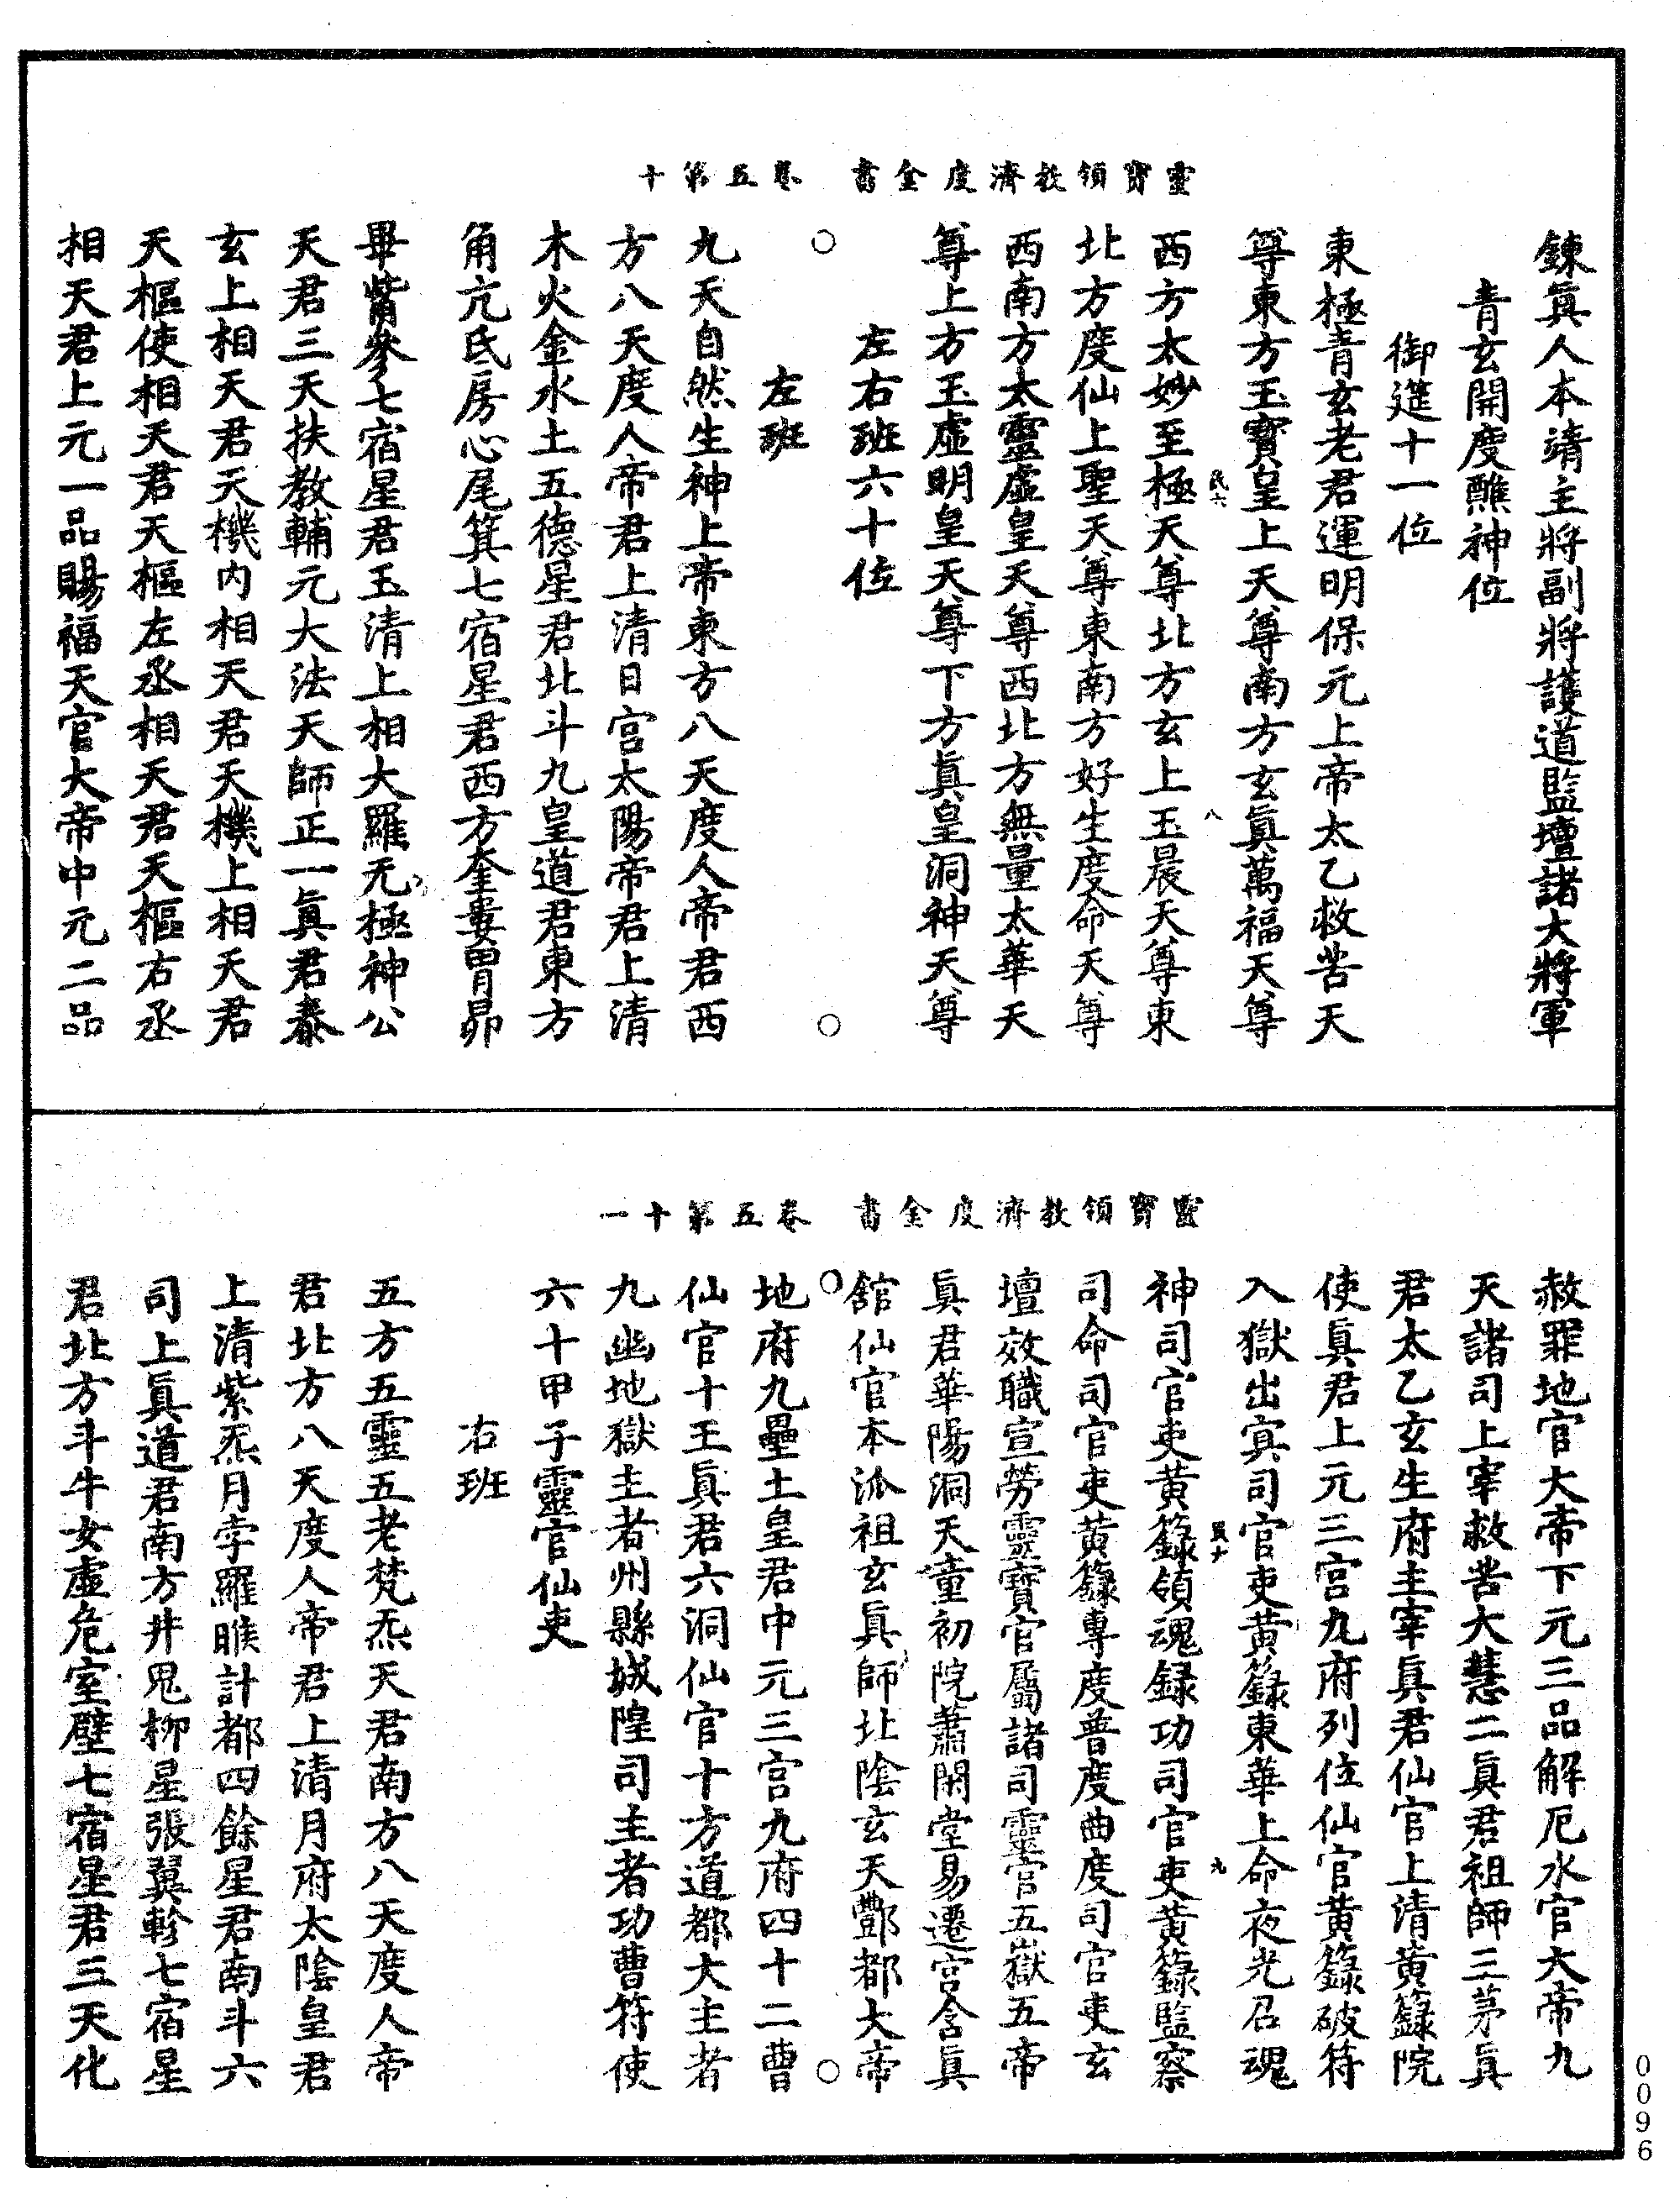 靈寶領教濟度金書 卷五第十
鍊眞人本靖主將副將護道監壇諸大將軍
青玄開度醮神位
御筵十一位
東極青玄老君運明保元上帝太乙救苦天
尊東方玉寳皇上天尊南方玄眞萬福天尊
西方太妙至極天尊北方玄上玉晨天尊東
北方度仙上聖天尊東南方好生度命天尊
西南方太靈虛皇天尊西北方無量太華天
尊上方玉虛明皇天尊下方眞皇洞神天尊
左右班六十位
左班
九天自然生神上帝東方八天度人帝君西
方八天度人帝君上清日宮太陽帝君上清
木火金水土五德星君北斗九皇道君東方
角亢氐房心尾箕七宿星君西方奎婁胃昴
畢觜參七宿星君玉清上相大羅无極神公
天君三天扶教輔元大法天師正一眞君泰
玄上相天君天機內相天君天機上相天君
天樞使相天君天樞左丞相天君天樞右丞
相天君上元一品賜福天官大帝中元二品
靈寶領教濟度金書 卷五第十一
赦罪地官大帝下元三品解厄水官大帝九
天諸司上宰救苦大慧二眞君祖師三茅眞
君太乙玄生府主宰眞君仙官上清黃籙院
使眞君上元三宮九府列位仙官黃籙破符
入獄出冥司官吏黃籙東華上命夜光召魂
神司官吏黃籙領魂録功司官吏黃籙監察
司命司官吏黃籙專度普度曲度司官吏玄
壇效職宣勞靈寶官屬諸司靈官五嶽五帝
眞君華陽洞天童初院蕭閑堂易遷宮含眞
舘仙官本派祖玄眞師北陰玄天酆都大帝
地府九壘土皇君中元三宮九府四十二曹
仙官十王眞君六洞仙官十方道都大主者
九幽地獄主者州縣城隍司主者功曹符使
六十甲子靈官仙吏
右班
五方五靈五老梵炁天君南方八天度人帝
君北方八天度人帝君上清月府太陰皇君
上清紫炁月孛羅睺計都四餘星君南斗六
司上眞道君南方井鬼柳星張翼軫七宿星
君北方斗牛女虛危室壁七宿星君三天化
0096